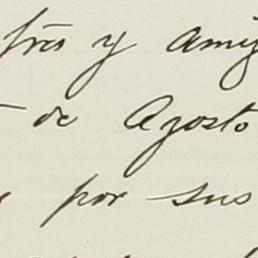 y Amig
de Agosto
por sus